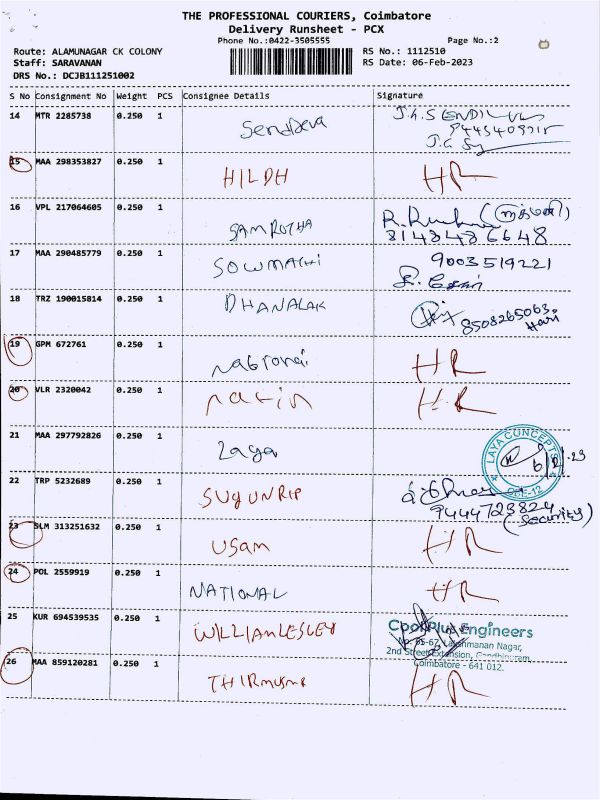 THE PROFESSIONAL COURIERS, Coimbatore
Delivery Runsheet - PCX
Phone No.:0422-3505555
Page No.:2
Route: ALAMUNAGAR CK COLONY
RS No.: 1112510
Staff: SARAVANAN
RS Date: 06-Feb-2023
DRS No.: DCJB111251002
S No Consignment No Weight PCS Consignee Details Signature
14 MTR 2285738 0.250 1
15 MAA 298353827 0.250 1 HILDH HR
16 VPL 217064605 0.250 1 SAMRUTHA
8148486648
17 MAA 290485779 0.250 1 SOWMACHI 9003519221
18 TRZ 190015814 0.250 1 DHANALAK 8508265063
Hari
19 GPM 672761 0.250 1 HR
20 VLR 2320042 0.250 1 HR
21 MAA 297792826 0.250 1 Laya LAYA CONCEPTS
22 TRP 5232689 0.250 1 SUGUNRIP
9444723824
(Security)
23 SLM 313251632 0.250 1 Usam HR
24 POL 2559919 0.250 1 NATIONAL HR
25 KUR 694539535 0.250 1 WILLIAMLESLEY Cool Plus Engineers
2nd Street Extension,
Coimbatore - 641 012.
26 MAA 859120281 0.250 1 HR